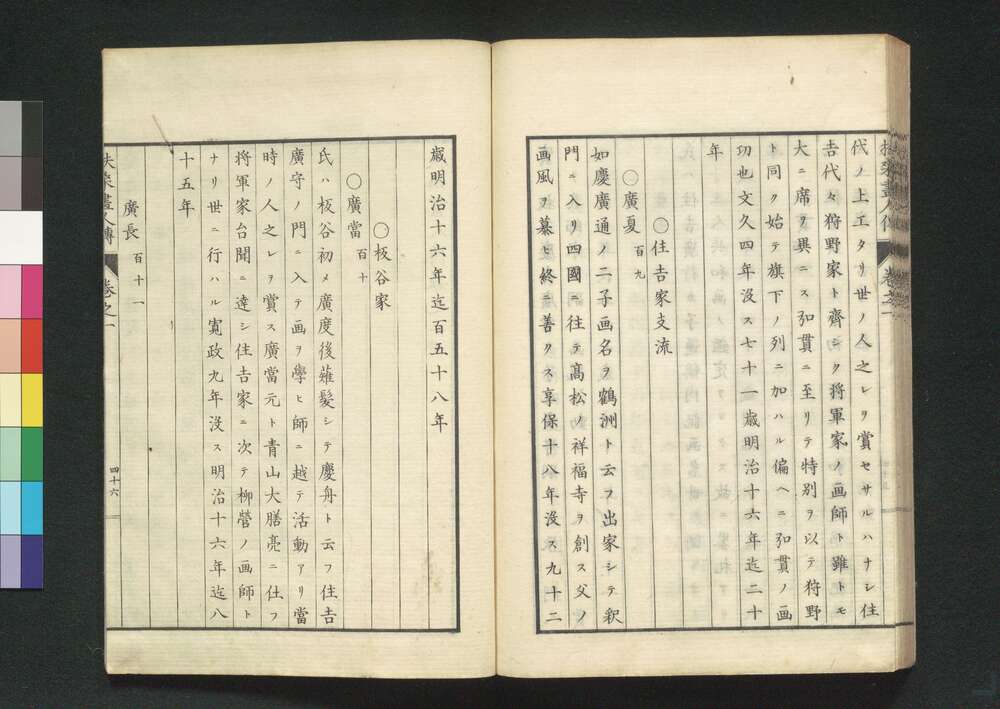 扶桑畫人傳 卷之一
代ノ上工タリ世ノ人之レヲ賞セサルハナシ住
吉代々狩野家ト齊シク将軍家ノ画師ト雖トモ
大ニ席ヲ異ニス弘貫ニ至リテ特別ヲ以テ狩野
ト同ク始テ旗下ノ列ニ加ハル偏ヘニ弘貫ノ画
功也文久四年没ス七十一歳明治十六年迄二十
年
〇住吉家支流
〇廣夏 百九
如慶廣通ノ二子画名ヲ鶴洲ト云フ出家シテ釈
門ニ入リ四國ニ往テ髙松ノ祥福寺ヲ創ス父ノ
画風ヲ慕ヒ終ニ善クス享保十八年没ス九十二
歳明治十六年迄百五十八年
〇板谷家
〇廣當 百十
氏ハ板谷初メ廣度後薙髪シテ慶舟ト云フ住吉
廣守ノ門ニ入テ画ヲ學ヒ師ニ越テ活動アリ當
時ノ人之レヲ賞ス廣當元ト青山大膳亮ニ仕フ
将軍家台聞ニ達シ住吉家ニ次テ柳營ノ画師ト
ナリ世ニ行ハル寛政九年没ス明治十六年迄八
十五年
廣長 百十一
扶桑畫人傳 卷之一 四十六